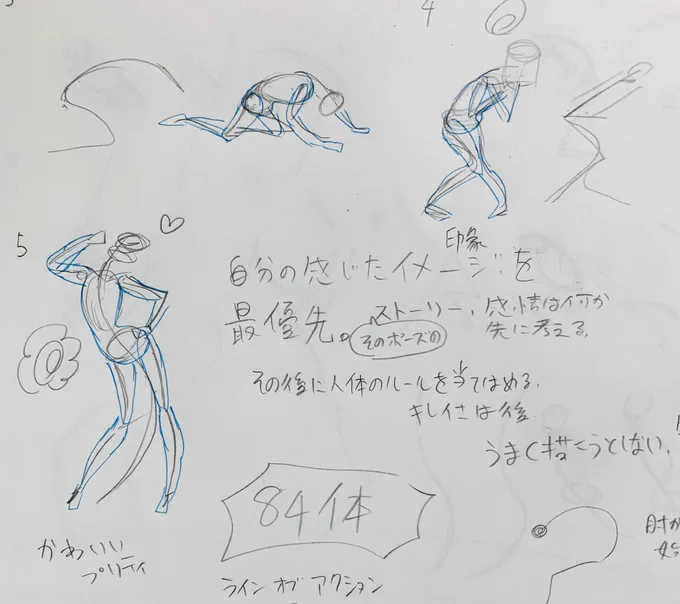 4
5
印象
自分の感じたイメージを
最優先。ストーリー、感情は何か
そのポーズの
先に考える。
その後に人体のルールを当てはめる。
キレイさは後
うまく描こうとしない。
84体
かわいい
プリティ
ラインオブアクション
肘が